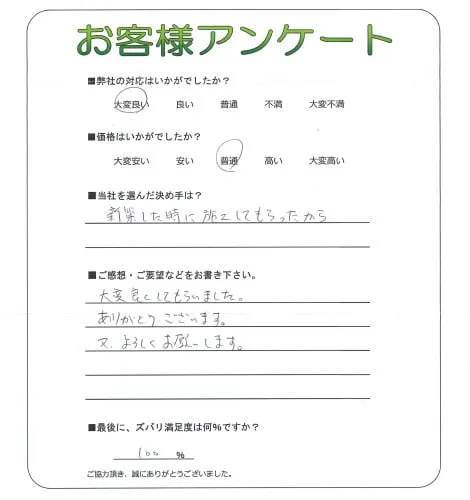 お客様アンケート
■弊社の対応はいかがでしたか？
大変良い 良い 普通 不満 大変不満
■価格はいかがでしたか？
大変安い 安い 普通 高い 大変高い
■当社を選んだ決め手は？
新築した時に施工してもらったから
■ご感想・ご要望などをお書き下さい。
大変良くしてもらいました。
ありがとうございます。
又、よろしくお願いします。
■最後に、ズバリ満足度は何％ですか？
100 ％
ご協力頂き、誠にありがとうございました。